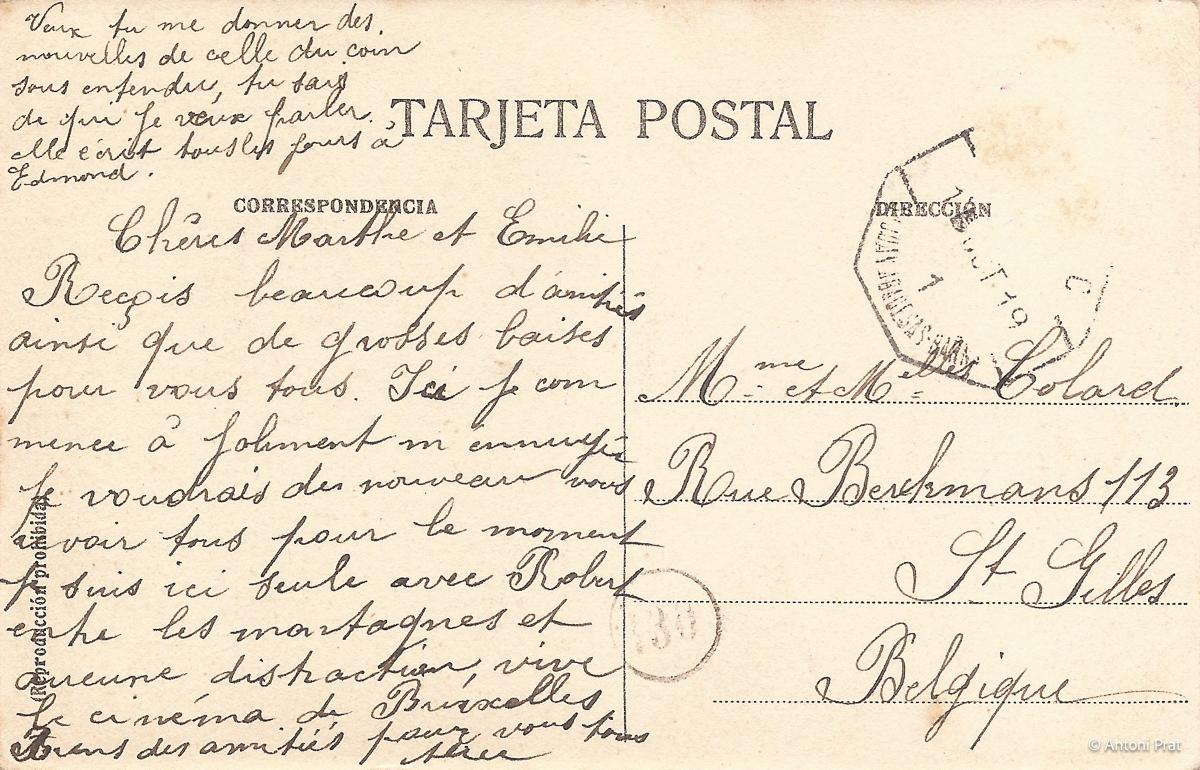 Veux tu me donner des
nouvelles de celle du coin
sous entendu, tu sais
de qui je veux parler.
elle écrit tous les jours à
Edmond.
TARJETA POSTAL
CORRESPONDENCIA
DIRECCIÓN
Chêres Marthe et Emilie
Reçois beaucoup d'amitiés
ainsi que de grosses baises
pour vous tous. Ici je com
mence à joliment m ennuyé
Je voudrais de nouveau vous
voir tous pour le moment
Je suis ici seule avec Robert
entre les montagnes et
aucune distraction, vive
le cinéma de Bruxelles
Biens des amitiés pour vous tous
(Reproducción prohibida)
OCT 19
1
C
Mme et Melles Colard.
Rue Berckmans 113
St Gilles
Belgique
130
© Antoni Prat